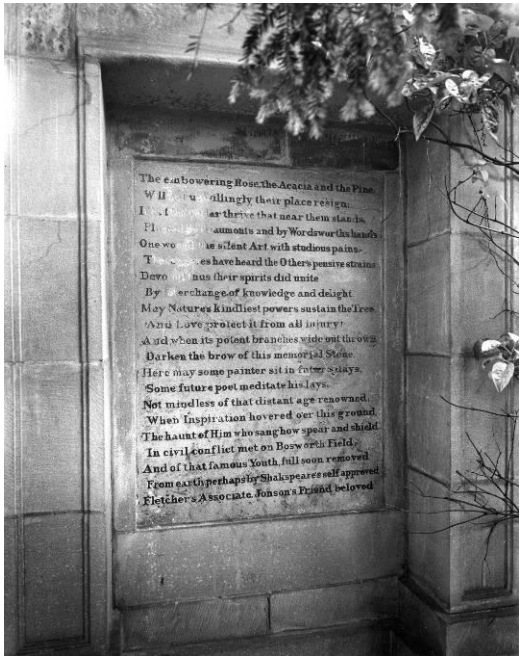 The embowering Rose, the Acacia and the Pine,
Will their place resign;
thrive that near them stands,
and by Wordsworths hands
One the silent Art with studious pains,
have heard the Others pensive strains
their spirits did unite
By interchange of knowledge and delight
May Nature's kindliest powers sustain the Tree
And Love protect it from all injury!
And when its potent branches wide out thrown
Darken the brow of this memorial Stone
Here may some painter sit in future days,
Some future poet meditate his lays,
Not mindless of that distant age renowned,
When Inspiration hovered o'er this ground,
The haunt of Him who sang how spear and shield
In civil conflict met on Bosworth Field;
And of that famous Youth, full soon removed
From earth, perhaps by Shakspeare's self approved
Fletcher's Associate, Jonson's Friend beloved